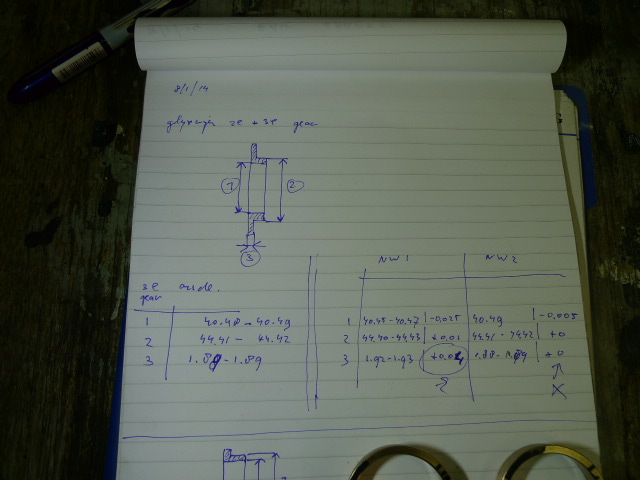 8/1/14
2e + 3e gear
1
2
3
NW1 NW2
3e oude.
gear
1 40.48 - 40.49
2 44.41 - 44.42
3 1.89 - 1.89
1 40.45 - 40.47 -0,025 40.49 -0,005
2 44.40 - 44.43 +0.01 44.41 - 44.42 +0
3 1.92 - 1.93 1.88 - 1.89 +0